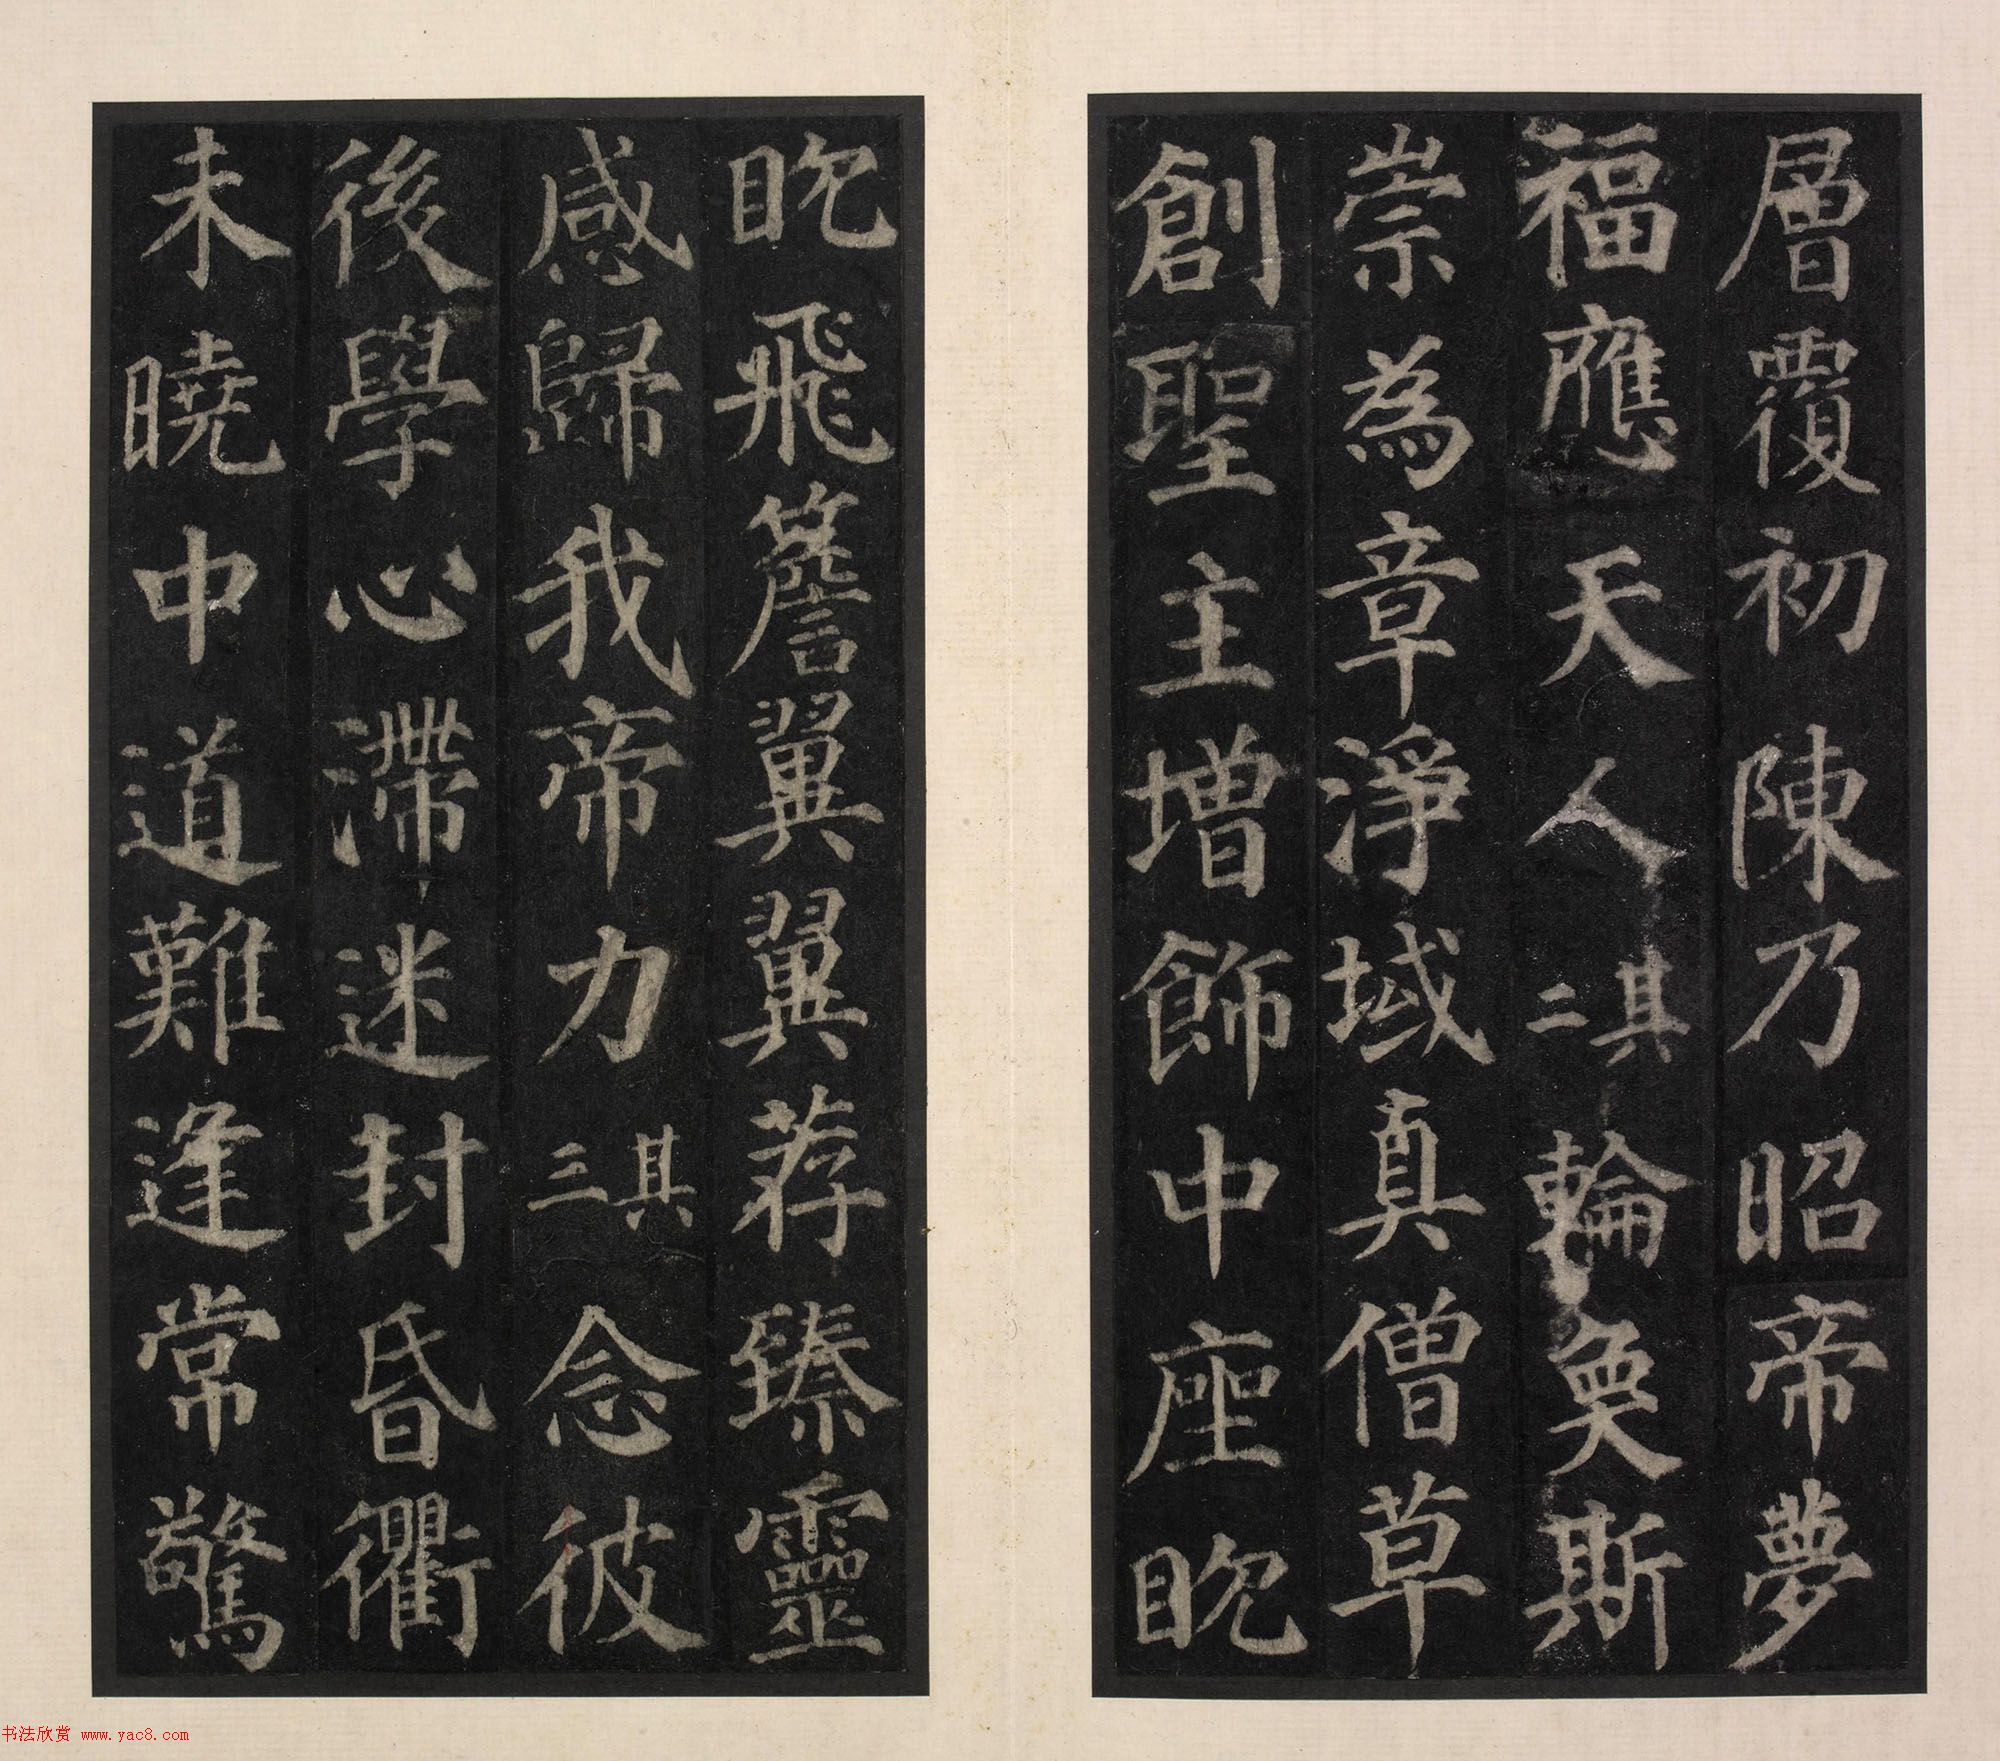 層覆初陳乃昭帝夢
福應天人其二輪奐斯
崇為章淨域真僧草
創聖主增飾中座眈
眈飛簷翼翼荐臻靈
感歸我帝力其三念彼
後學心滯迷封昏衢
未曉中道難逢常驚
书法欣赏 www.yac8.com